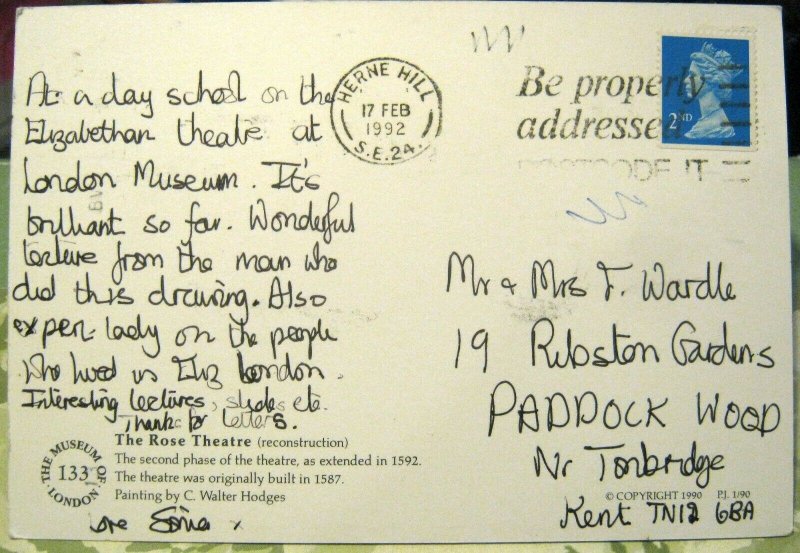 At a day school on the
Elizabethan theatre at
London Museum. It's
brilliant so far. Wonderful
lecture from the man who
did this drawing. Also
expert lady on the people
who lived in Eliz London.
Interesting lectures, slides etc.
Thanks for letters.
THE MUSEUM OF LONDON
133
The Rose Theatre (reconstruction)
The second phase of the theatre, as extended in 1592.
The theatre was originally built in 1587.
Painting by C. Walter Hodges
love Sonia x
HERNE HILL
17 FEB
1992
S.E.24.
Be properly
addressed
POSTCODE IT
2ND
Mr & Mrs F. Wardle
19 Ribston Gardens
PADDOCK WOOD
Nr Tonbridge
© COPYRIGHT 1990 P.J. 1/90
Kent TN12 6BA